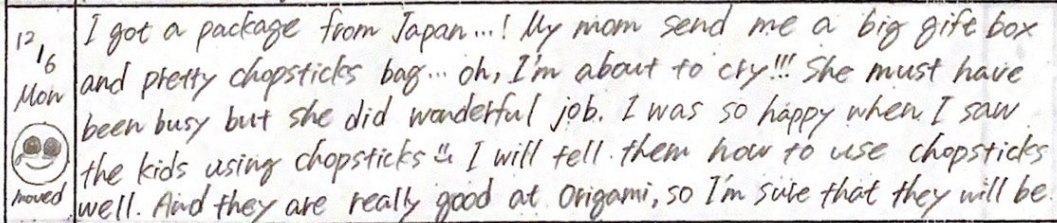 12/6
Mon
moved
I got a package from Japan...! My mom send me a big gift box
and pretty chopsticks bag... oh, I'm about to cry!!! She must have
been busy but she did wonderful job. I was so happy when I saw
the kids using chopsticks I will tell them how to use chopsticks
well. And they are really good at origami, so I'm sure that they will be